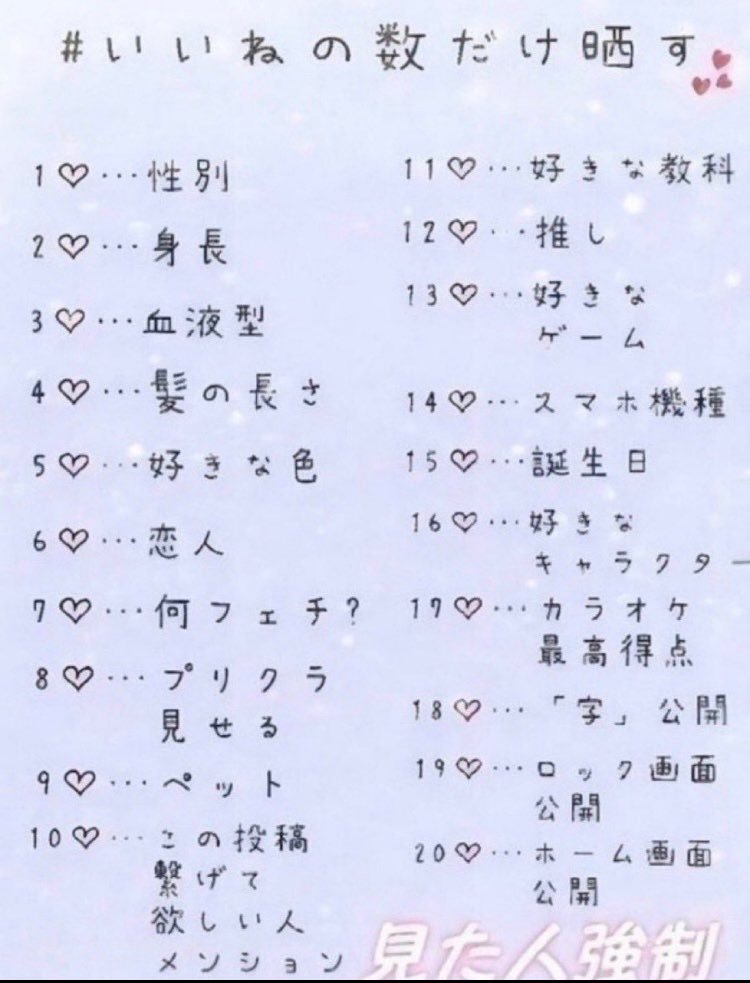 #いいねの数だけ晒す
1♡…性別
2♡…身長
3♡…血液型
4♡…髪の長さ
5♡…好きな色
6♡…恋人
7♡…何フェチ?
8♡…プリクラ
見せる
9♡…ペット
10♡…この投稿
繋げて
欲しい人
メンション
11♡…好きな教科
12♡…推し
13♡…好きな
ゲーム
14♡…スマホ機種
15♡…誕生日
16♡…好きな
キャラクター
17♡…カラオケ
最高得点
18♡…「字」公開
19♡…ロック画面
公開
20♡…ホーム画面
公開
見た人強制